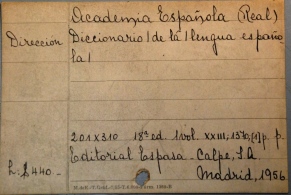 Academia Española (Real)
Dirección Diccionario / de la / lengua españo
la /
201x310 18ª ed. 1 vol. XXIII; 1370, [1] p. p.
Editorial Espasa - Calpe, S.A.
L. $ 440.- Madrid, 1956